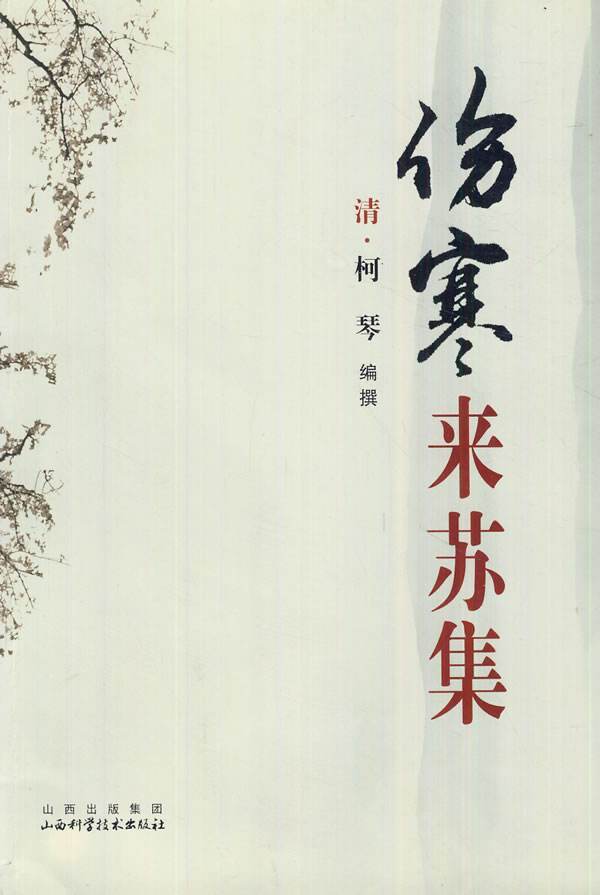 伤寒来苏集
清·柯琴 编撰
山西出版集团
山西科学技术出版社